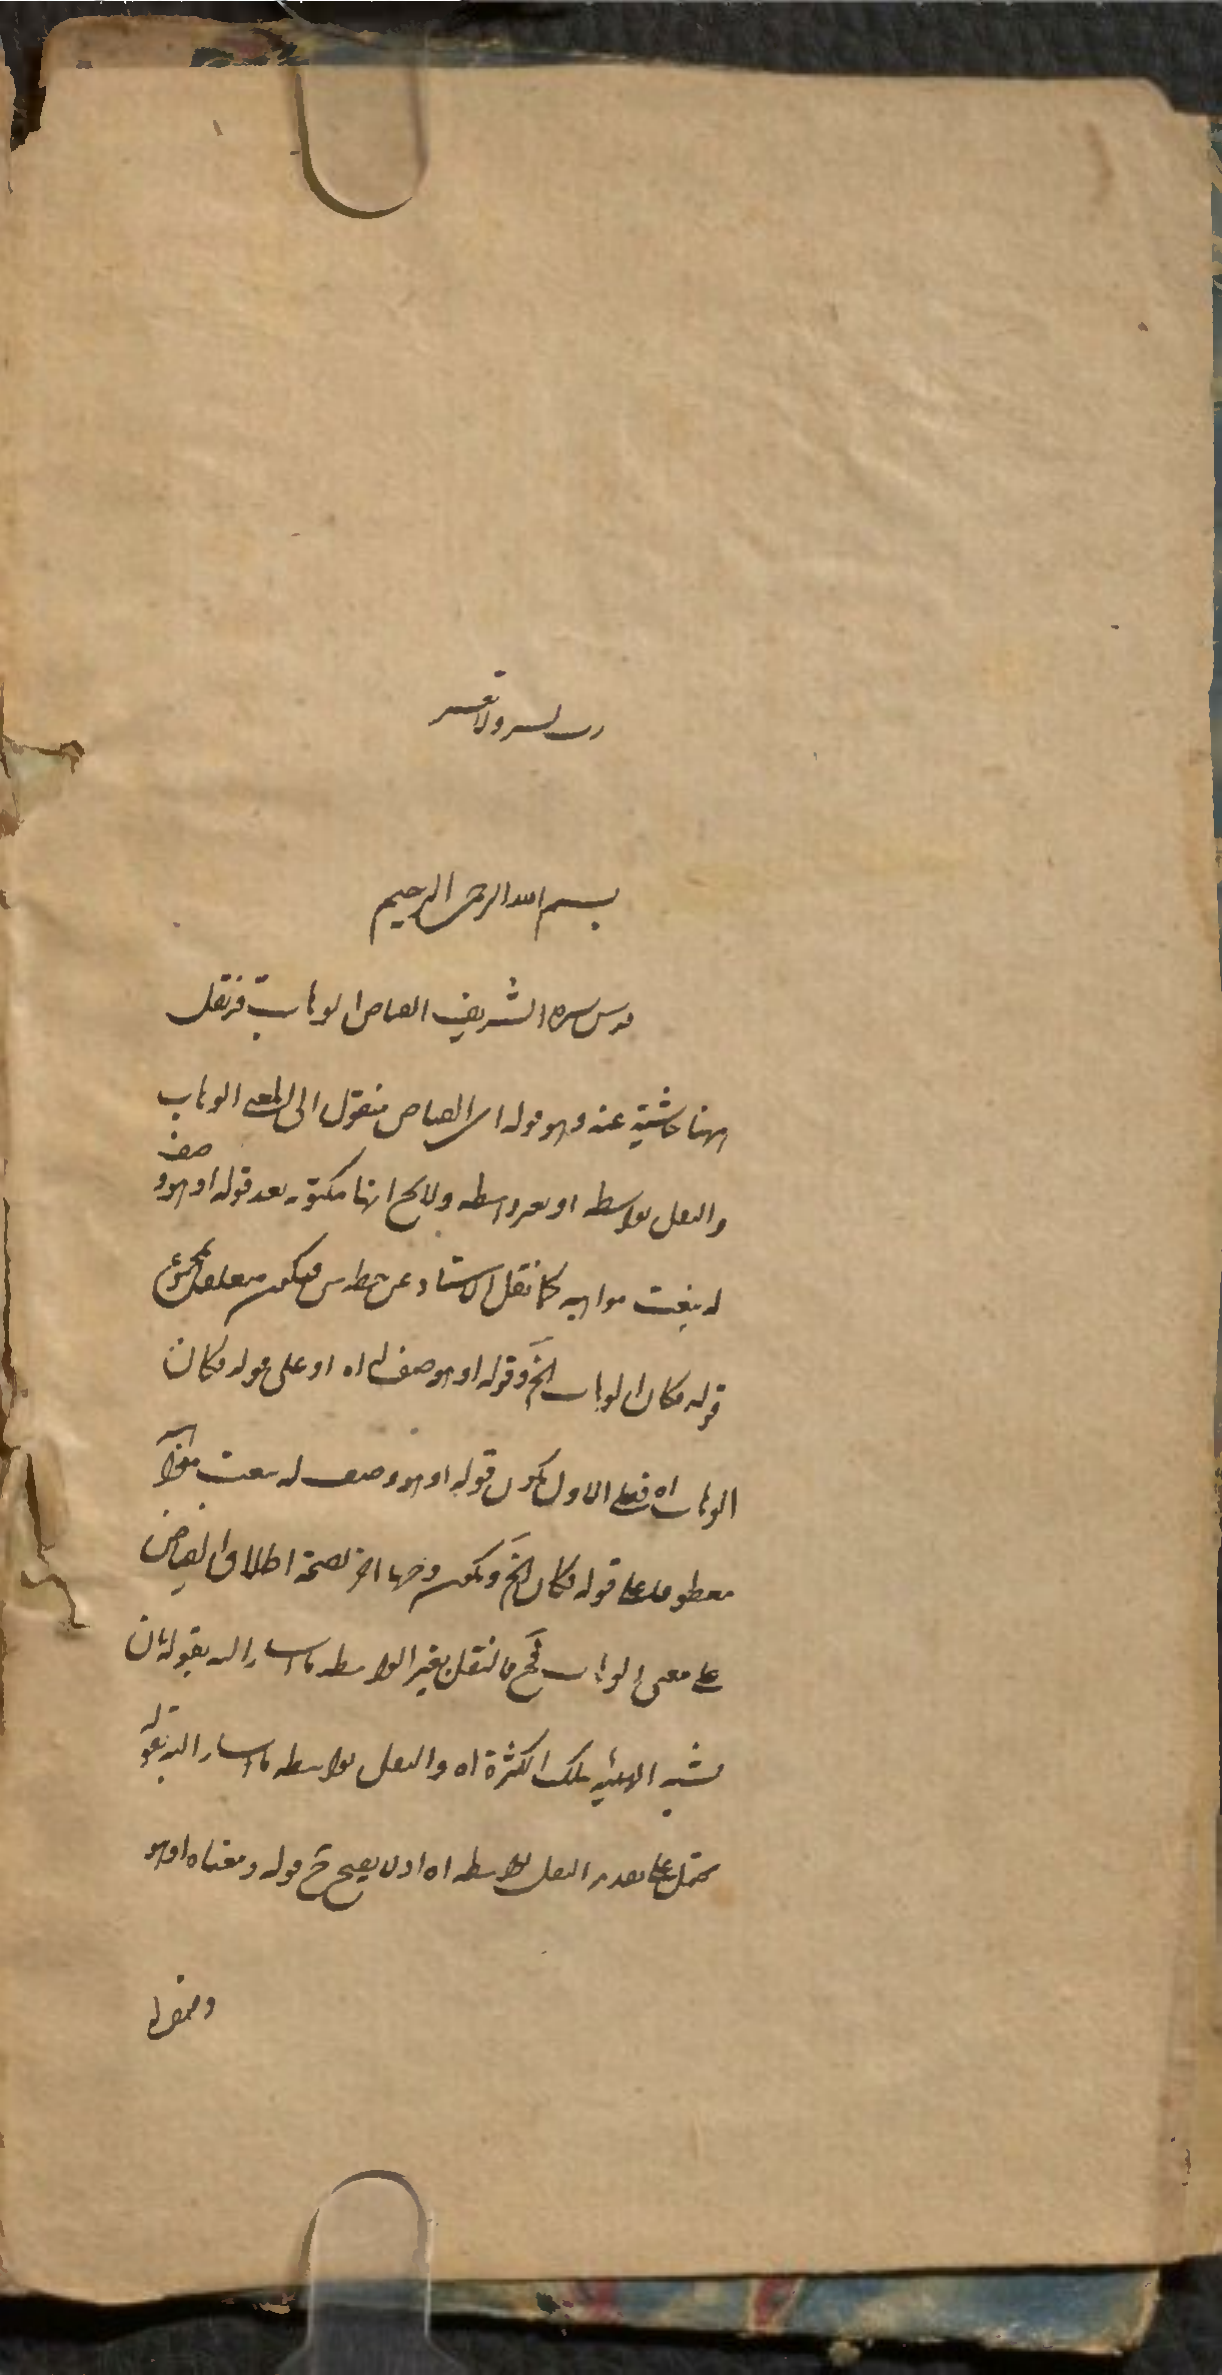 رب يسر ولا تعسر
بسم الله الرحمن الرحيم
قدس سره الشريف الفياض الوهاب قد نقل
ههنا حاشية عنه وهو قوله اى الفياض منقول الى المعنى الوهاب
والنقل بواسطة او بغير واسطة ولا يخ انها مكتوبة بعد قوله او هو وصف
له بنعت مواهبه كما نقل الاستاد عن خطه فيكون متعلقا بمجموع
قوله فكان الوهاب الخ وقوله او هو وصف له اه او على قوله فكان
الوهاب اه فعلى الاول يكون قوله او هو وصف له بنعت
معطوفا على قوله فكان الخ ويكون وجها اخر لصحة اطلاق الفياض
على معنى الوهاب فح فالنقل بغير الواسطة ما اشار اليه بقوله بان
شبه الهيئة بتلك الكثرة اه والنقل بواسطة ما اشار اليه بقوله
يحتمل على تقدير النقل بواسطة اه اذ لا يصح ح قوله ومعناه او هو
وصف له